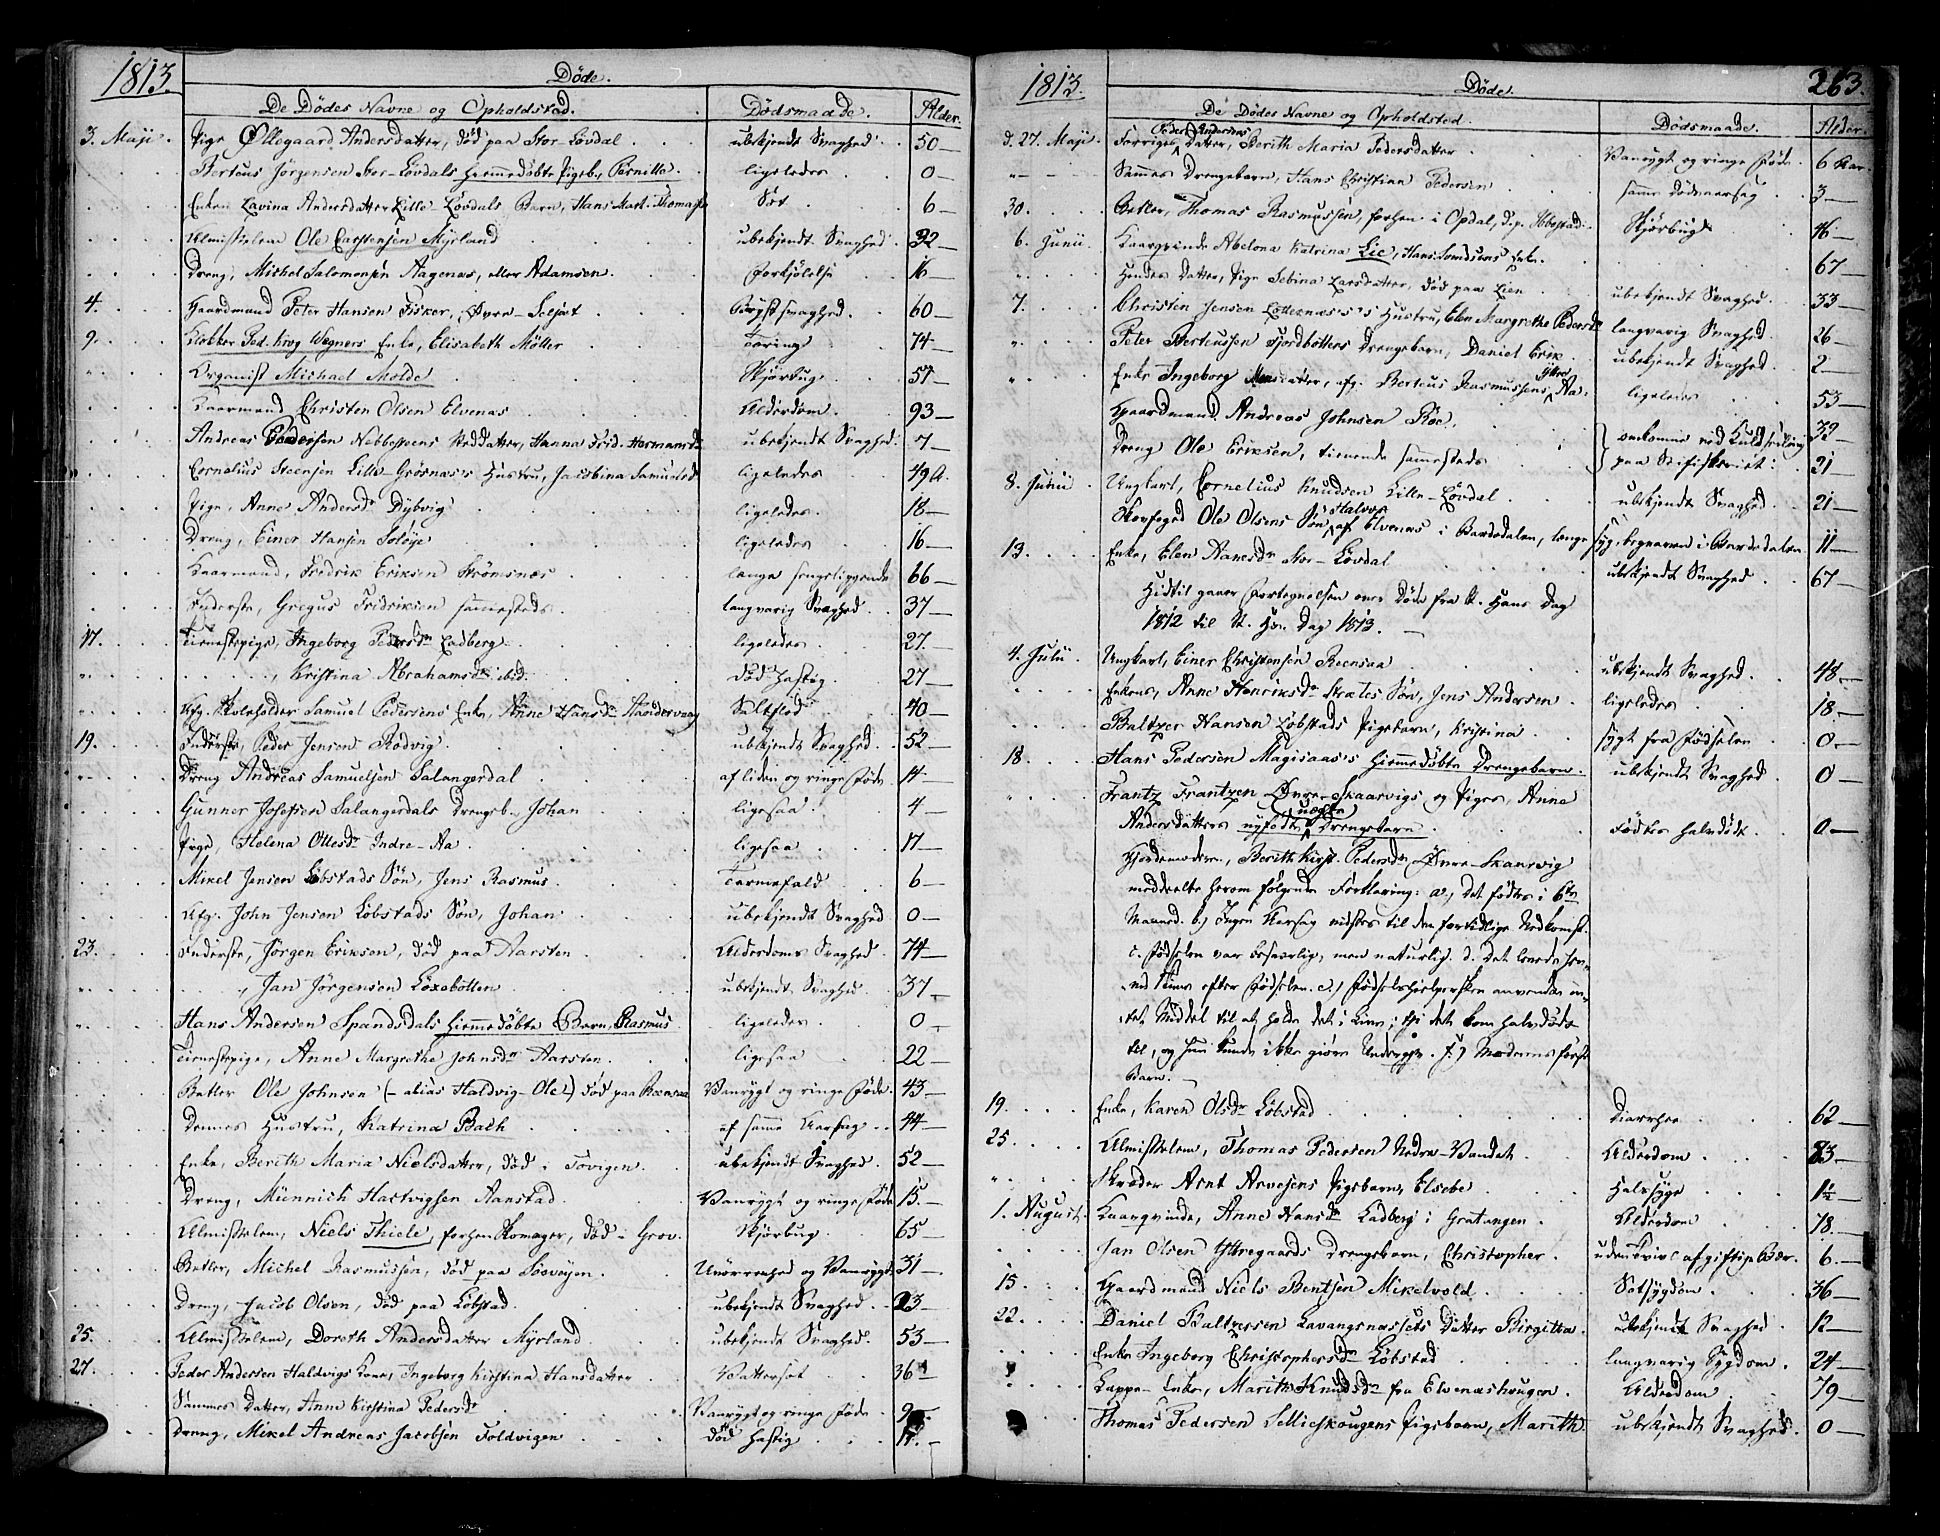 1813.
Døde.
De Dødes Navne og Opholdsted.
Dødsmaade.
Alder.
3. Maji. Pige Ollegaard Andersdatter, død paa Stor Løvdal. ubekjendt Svaghed. 50 —
Berteus Jørgensen Stor-Løvdals hiemmedøbte Pigeb., Pernilla. ligeledes 0 —
Enken Lavina Andersdatter Lille Løvdals Barn, Hans Mart. Thomass. Sot 6 —
Almisselem Ole Carstensen Myrland ubekjendt Svaghed. 32 —
Dreng, Michel Salomonsen Aagenæs, eller Adamsen. Forkjølelse 16 —
4. Gaardmand Peter Hansen Fisker, Øvre-Seljæt Brystsvaghed. 60 —
9. Klokker Ped. Krog Wegners Enke, Elisabeth Møller Tæring 74 —
Organist Michael Molde Skjørbug 57 —
Kaarmand Christen Olsen Elvenæs Alderdom. 93 —
Andreas Pedersen Nebbesteens Steddatter, Hanna Frid. Hermansdr ubekjendt Svaghed. 7 —
Cornelius Steensen Lille-Grøsnæs's Hustru, Jacobina Samuelsdr ligeledes 49 A.
Pige, Anne Andersdr Dybvig ligeledes. 18 —
Dreng, Einer Hansen Soløye ligeledes 16 —
Kaarmand, Fredrik Eriksen Strømsnæs længe sengeliggende 66 —
Inderste, Gregus Fridriksen sammesteds. langvarig Svaghed. 37 —
17. Tienestepige, Ingeborg Pedersdr Ladberg. ligeledes. 27. —
Kristina Abrahamsdr ibid. død hastig. 27 —
Afg. Skoleholder Samuel Pedersens Enke, Anne Hansdr Haandervaag Saltflod 40 —
19. Inderste, Peder Jensen Rødvig. ubekjendt Svaghed. 52 —
Dreng Andreas Samuelsen Salangerdal af liden og ringe Føde 14 —
Gunner Josefsen Salangerdals Drengeb., Johan ligesaa 4 —
Pige, Helena Ollesdr Indre-Aa ligesaa 17 —
Mikel Jensen Løbstads Søn, Jens Rasmus. Tarmefald 6 —
Afg. John Jensen Løbstads Søn, Johan ubekjendt Svaghed 0 —
23. Inderste, Jørgen Eriksen, død paa Aarsten Alderdoms Svaghed 74 —
Jan Jørgensen Løxebotten ubekjendt Svaghed. 37 —
Hans Andersen Spandsdals hiemmedøbte Barn, Rasmus ligeledes. 0 —
Tienestepige, Anne Margrethe Johnsdr Aarsten. ligesaa 22 —
Betler Ole Johnsen (— alias Haldvig-Ole) død paa Røensaa Vanrygt og ringe Føde. 43 —
Dennes Hustru, Katrina Bach af samme Aarsag 44 —
Enke, Berith Maria Nielsdatter, død i Tovigen. ubekjendt Svaghed. 52 —
Dreng, Münnich Hartvigsen Aanstad. Vanrygt og ringe Føde 15. —
Almisselem, Niels Thiele, forhen Skomager, død i Grov. Skjørbug 65 —
Betler, Michel Rasmussen, død paa Søevejen. Ureenhed og Vanrygt. 31 —
Dreng, Jacob Olsen, død paa Løbstad. ubekjendt Svaghed. 23 —
25. Almisselem, Doroth Andersdatter Myrland ubekjendt Svaghed. 53 —
27. Peder Andersen Haldvigs Kone, Ingeborg Kirstina Hansdatter Vattersot 36
Sammes Datter, Anne Kirstina Pedersdr Vanrygt og ringe Føde 9
Dreng, Mikel Andreas Jacobsen Foldvigen død hastig
1813.
Døde.
263.
De Dødes Navne og Opholdsted.
Dødsmaade.
Alder.
d. 27. Maji. Forriges Peder Andersens Datter, Berith Maria Pedersdatter Vanrygt og ringe Føde. 6 Aar.
Sammes Drengebarn, Hans Christian Pedersen samme Dødsaarsag 3 —
30. Betler, Thomas Rasmussen, forhen i Opdal, Ibbestad. Skjørbug 46 —
6. Junii. Kaarqvinde Abelona Katrina Lie, Hans Simonsens Enke. 67 —
Hendes Datter, Pige Sebina Larsdatter, død paa Lien ubekjendt Svaghed. 33 —
7. Christen Jensen Lotternæss's Hustru, Elen Margrethe Pedersdr langvarig Svaghed. 26 —
Peter Berteussen Fjordbotters Drengebarn, Daniel Erik. ubekjendt Svaghed. 2 —
Enke Ingeborg datter, afg. Berteus Rasmussens Yttre Aa. ligeledes 53 —
Gaardmand Andreas Johnsen Roe 32
Dreng Ole Eriksen, tienende sammesteds } omkomne ved Kuldseiling paa Skifiskeriet: 21 —
8. Junii Ungkarl, Cornelius Knudsen Lille-Løvdal ubekjendt Svaghed 21 —
Skovfoged Ole Olsens Søn Halvor af Elvenæs i Bardodalen, længe syg, begraven i Bardodalen. 11 —
13. Enke, Elen Aanesdr Stor-Løvdal ubekjendt Svaghed 67 —
Hidtil gaaer Fortegnelsen over Døde fra St. Hans Dag
1812 til St. Hs. Dag 1813. —
4. Julii. Ungkarl, Einer Christensen Reensaa ubekjendt Svaghed. 48. —
Enkens, Anne Henriksdr Skatees Søn, Jens Andersen ligeledes 18. —
Baltzer Hansen Løbstads Pigebarn, Kristina sygt fra Fødselen 0. —
18. Hans Pedersen Magisaas's hiemmedøbte Drengebarn. ubekjendt Svaghed 0 —
Frantz Frantzen Øvre-Skaarvigs og Pigen, Anne
Andersdatters nyfødte uægte Drengebarn. Fødtes halvdødt. 0 —
Gjordemoderen, Berith Kirst. Pedersdr Øvre-Skaarvig
meddeelte herom følgende Forklaring: a., Det fødtes i 6te
Maaned. b.) Ingen Aarsag vidstes til den fortidlige Nedkomst.
c. Fødselen var besværlig, men naturlig. d. Det levede
en Time efter Fødselen. e.) Fødselshielpersken anvendte in-
tet Middel til at holde det i Live; thi det kom halvdødt
til, og hun kunde ikke giøre Underværk. f.) Moderens første
Barn.
19. Enke, Karen Olsdr Løbstad Diarrhee 62 —
25. Almisselem, Thomas Pedersen Nedre-Vandet Alderdom 83. —
Skræder Arnt Arnesens Pigebarn, Elsebe Halssyge 1½ —
1. August. Kaarqvinde, Anne Hansdr Ladberg i Gratangen Alderdom 78. —
Jan Olsen Yttregaards Drengebarn, Christopher uden Tvivl af giftige Bær. 6. —
15. Gaardmand Niels Bentsen Mikelvold Sotsygdom 36 —
22. Daniel Baltzersen Lavangsnæssets Datter Birgitha ubekjendt Svaghed. 12 —
Enke Ingeborg Christophersdr Løbstad langvarig Sygdom. 24 —
Lappe-Enke, Marith Knudsdr fra Elvenæshougen. Alderdom 79 —
Thomas Pedersen Sellieskougens Pigebarn, Marith. ubekjendt Svaghed. 0 —